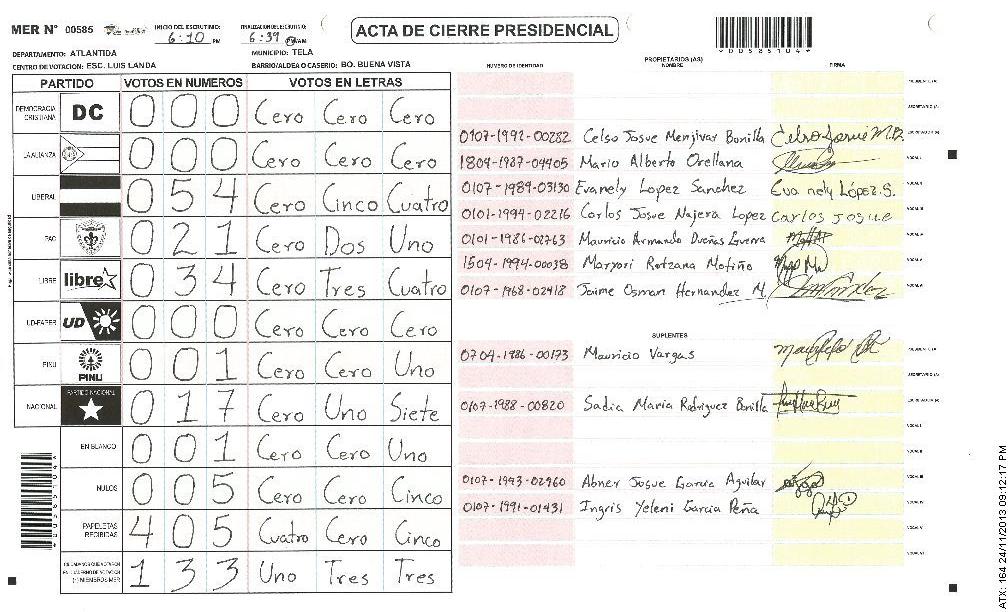 MER N° 00585 INICIO DEL ESCRUTINIO: 6:10 PM FINALIZACION DEL ESCRUTINIO: 6:39 PM/AM
ACTA DE CIERRE PRESIDENCIAL
DEPARTAMENTO: ATLANTIDA MUNICIPIO: TELA
CENTRO DE VOTACION: ESC. LUIS LANDA BARRIO/ALDEA O CASERIO: BO. BUENA VISTA
PARTIDO VOTOS EN NUMEROS VOTOS EN LETRAS
DEMOCRACIA CRISTIANA DC 0 0 0 Cero Cero Cero
LA ALIANZA 0 0 0 Cero Cero Cero
LIBERAL 0 5 4 Cero Cinco Cuatro
PAC 0 2 1 Cero Dos Uno
LIBRE libre 0 3 4 Cero Tres Cuatro
UD-FAPER UD 0 0 0 Cero Cero Cero
PINU PINU 0 0 1 Cero Cero Uno
NACIONAL PARTIDO NACIONAL 0 1 7 Cero Uno Siete
EN BLANCO 0 0 1 Cero Cero Uno
NULOS 0 0 5 Cero Cero Cinco
PAPELETAS RECIBIDAS 4 0 5 Cuatro Cero Cinco
CIUDADANOS QUE VOTARON EN CUADERNO DE VOTACION (+) MIEMBROS MER 1 3 3 Uno Tres Tres
PROPIETARIOS (AS)
NUMERO DE IDENTIDAD NOMBRE FIRMA
0107-1992-00282 Celso Josue Menjivar Bonilla Celso Josue M.B.
1804-1987-04405 Mario Alberto Orellana
0107-1989-03130 Evanely Lopez Sanchez Eva nely López.S.
0101-1994-02216 Carlos Josue Najera Lopez Carlos Josgue
0101-1986-02763 Mauricio Armando Dueñas Guerra
1504-1994-00038 Maryori Rotzana Motiño
0107-1968-02418 Jaime Osman Hernandez M.
SUPLENTES
0704-1986-00173 Mauricio Vargas
0107-1988-00820 Sadia Maria Rodriguez Bonilla
0107-1993-02960 Abner Josue Garcia Aguilar
0107-1991-01431 Ingris Yeleni Garcia Peña
ATX: 164 24/11/2013 09:12:17 PM